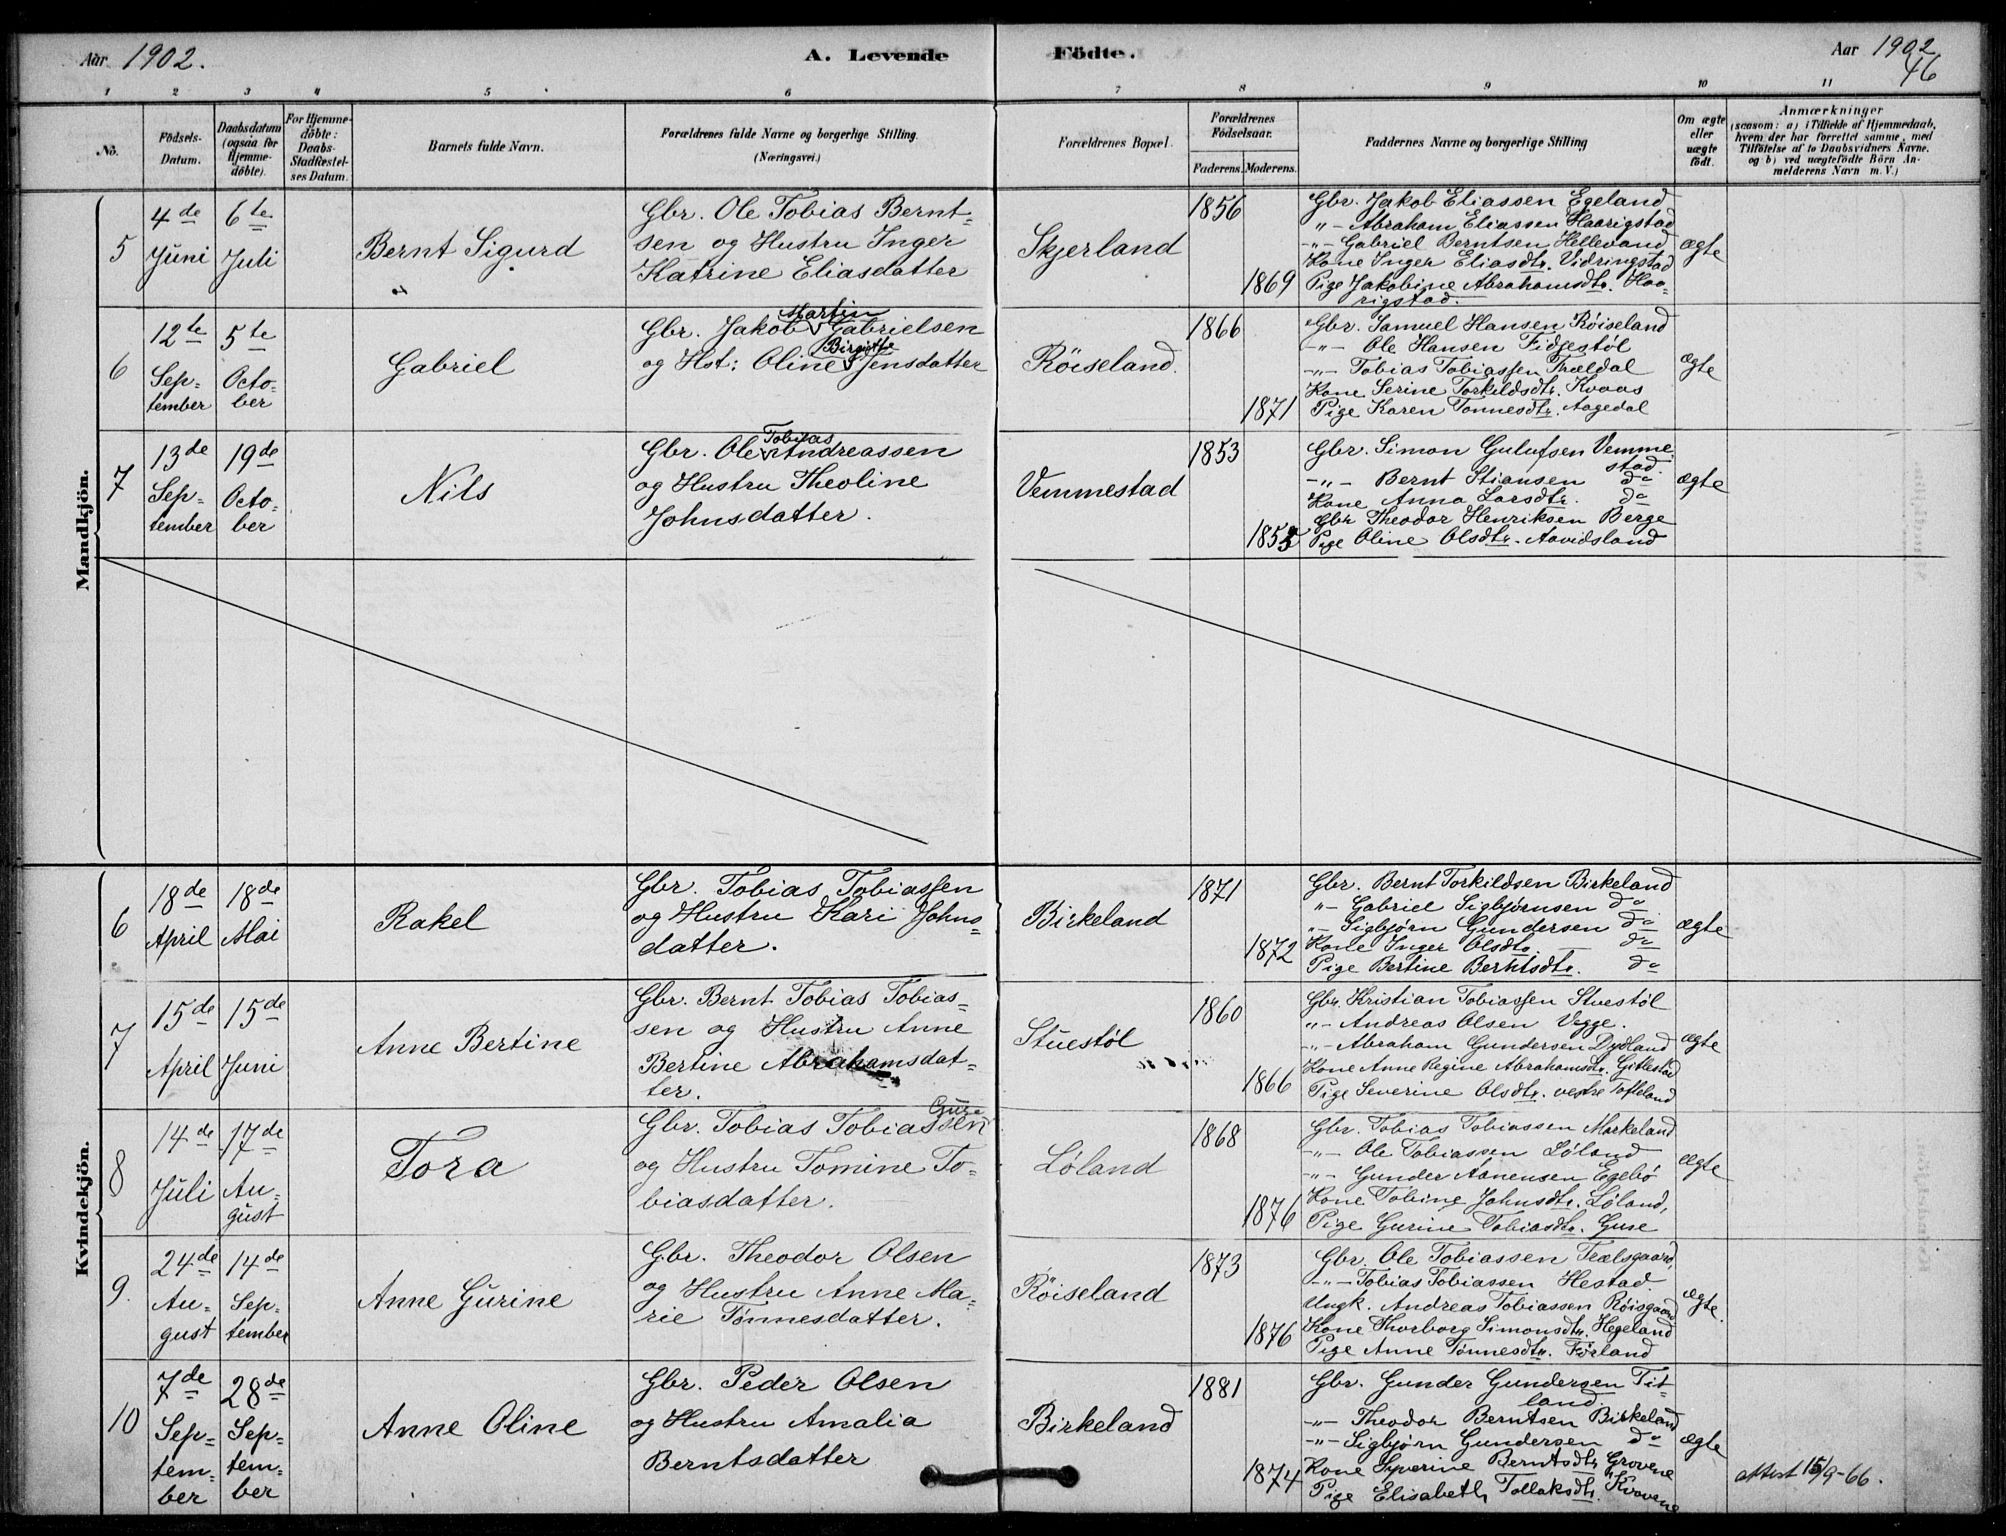 Aar 1902.
A. Levende Födte.
Aar 1902
46
1 2 3 4 5 6 7 8 9 10 11
No.
Födsels-Datum.
Daabsdatum (ogsaa for Hjemme-döbte).
For Hjemme-döbte: Daabs-Stadfæstel-ses Datum.
Barnets fulde Navn.
Forældrenes fulde Navne og borgerlige Stilling.
(Næringsvei.)
Forældrenes Bopæl.
Forældrenes Födselsaar.
Faderens. Moderens.
Faddernes Navne og borgerlige Stilling
Om ægte eller uægte födt.
Anmærkninger
(saasom: a) i Tilfælde af Hjemmedaab, hvem der har forrettet samme, med Tilföielse af to Daabsvidners Navne, og b) ved uægtefödte Börn An-melderens Navn m. V.)
Mandkjön.
5
4de Juni
6te Juli
Bernt Sigurd
Gbr. Ole Tobias Bernt-
sen og Hustru Inger
Katrine Eliasdatter
Skjerland
1856
1869
Gbr. Jakob Eliassen Egeland
"- Abraham Eliassen Haarigstad
-"- Gabriel Berntsen Hellevand
Kone Inger Eliasdtr. Vidringstad
Pige Jakobine Abrahamsdtr. Haa-
rigstad.
ægte
6
12te Sep-
tember
5te Octo-
ber
Gabriel
Martin
Gbr. Jakob Gabrielsen
Birgitte
og Hst: Oline Jensdatter
Röiseland.
1866
1871
Gbr. Samuel Hansen Röiseland
-"- Ole Hansen Fidjestöl
-"- Tobias Tobiassen Trældal
Kone Serine Torkildsdtr. Kvaas
Pige Karen Tonnesdtr. Aagedal
ægte
7
13de Sep-
tember
19de Octo-
ber
Nils
Tobias
Gbr. Ole Andreassen
og Hustru Theoline
Johnsdatter.
Vemmestad
1853
1855
Gbr. Simon Gulufsen Vemme-
stad.
-"- Bernt Stiansen do
Kone Anna Larsdtr. do
Gbr Theodor Henriksen Berge
Pige Oline Olsdtr. Aavidsland
ægte
Kvindekjön.
6
18de April
18de Mai
Rakel
Gbr. Tobias Tobiassen
og Hustru Kari Johns-
datter.
Birkeland
1871
1872
Gbr. Bernt Torkildsen Birkeland
"- Gabriel Sigbjørnsen do
"- Sigbjørn Gundersen do
Kone Inger Olsdtr. — do
Pige Bertine Berntsdtr. do
ægte
7
15de April
15de Juni
Anne Bertine
Gbr. Bernt Tobias Tobias-
sen og Hustru Anne
Bertine Abrahamsdat-
ter.
Stuestöl
1860
1866
Gbr. Kristian Tobiassen Stuestöl
"- Andreas Olsen Vegge.
-"- Abraham Gundersen Dydland
Kone Anne Regine Abrahamsdtr. Gitlestad
Pige Severine Olsdtr. vestre Tofteland
ægte
8
14de Juli
17de Au-
gust
Tora
Guse
Gbr. Tobias Tobiassen
og Hustru Tomine To-
biasdatter.
Löland
1868
1876
Gbr. Tobias Tobiassen Markeland
-"- Ole Tobiassen Löland
-"- Gunder Aanensen Egebö
Kone Tobine Johnsdtr. Löland,
Pige Gurine Tobiasdtr. Guse
ægte
9.
24de Au-
gust
14de Sep-
tember
Anne Gurine
Gbr. Theodor Olsen
og Hustru Anne Ma-
rie Tønnesdatter.
Röiseland
1873
1876
Gbr. Ole Tobiassen Trælsgaard,
-"- Tobias Tobiassen Hestad
Ungk. Andreas Tobiassen Röisgaard
Kone Thorborg Simonsdtr. Hegeland
Pige Anne Tønnesdtr. Förland
ægte.
10
7de Sep-
tem-
ber
28de Sep-
tem-
ber
Anne Oline
Gbr. Peder Olsen
og Hustru Amalia
Berntsdatter
Birkeland
1881
1874
Gbr. Gunder Gundersen Tit-
land
-"- Theodor Berntsen Birkeland
-"- Sigbjørn Gundersen do
Kone Syverine Berntsdtr Grovene
Pige Elisabeth Tollaksdtr. Kvovene
ægte
attest 15/9-66.